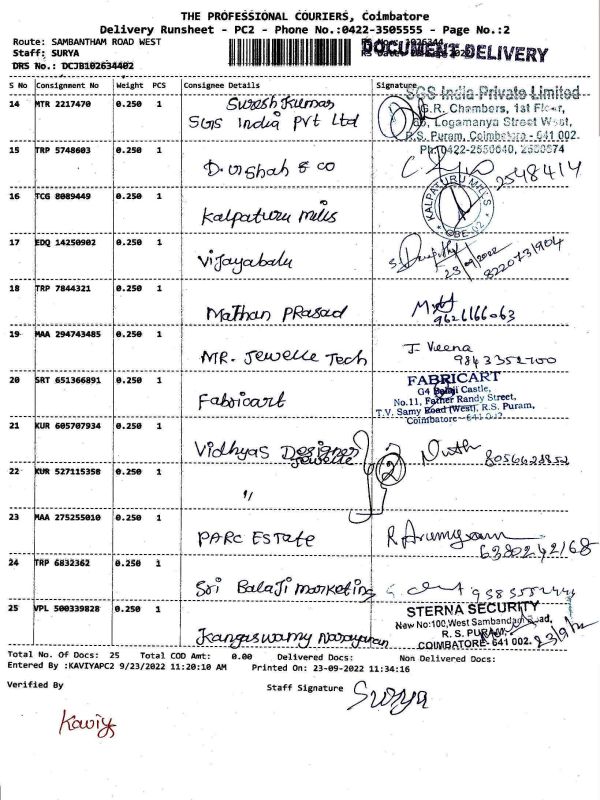 THE PROFESSIONAL COURIERS, Coimbatore
Delivery Runsheet - PC2 - Phone No.:0422-3505555 - Page No.:2
Route: SAMBANTHAM ROAD WEST
Staff: SURYA
DOCUMENT DELIVERY
DRS No.: DCJB102634402
S No Consignment No Weight PCS Consignee Details Signature
14 MTR 2217470 0.250 1 Suresh Kumar
SGS India Pvt Ltd
SGS India Private Limited
G.R. Chambers, 1st Floor,
Logamanya Street West,
R.S. Puram, Coimbatore - 641 002.
Ph:0422-2550640, 2550674
15 TRP 5748603 0.250 1
D.vishah & co
2548414
16 TCG 8089449 0.250 1
Kalpaturu mills
KALPATURU MILLS
CBE-02
17 EDQ 14250902 0.250 1
Vijayabalu
23/09/2022
8220731904
18 TRP 7844321 0.250 1
Mathan PRasad
9626166063
19 MAA 294743485 0.250 1
MR. Jewelle Tech
J. Veena
9843352700
20 SRT 651366891 0.250 1
Fabricart
FABRICART
G4 Balaji Castle,
No.11, Father Randy Street,
T.V. Samy Road (West), R.S. Puram,
Coimbatore - 641 002
21 KUR 605707934 0.250 1
Vidhyas Designer
Jewelle
2
22 KUR 527115358 0.250 1
"
23 MAA 275255010 0.250 1
PARC ESTATE
R Arumugam
6380242168
24 TRP 6832362 0.250 1
Sri Balaji marketing
25 VPL 500339828 0.250 1
Kangaswamy Narayanan
STERNA SECURITY
New No:100,West Sambandam Road,
R. S. PURAM,
COIMBATORE- 641 002.
23/9/22
Total No. Of Docs: 25 Total COD Amt: 0.00 Delivered Docs: Non Delivered Docs:
Entered By :KAVIYAPC2 9/23/2022 11:20:10 AM Printed On: 23-09-2022 11:34:16
Verified By
Staff Signature
Surya
Kaviya